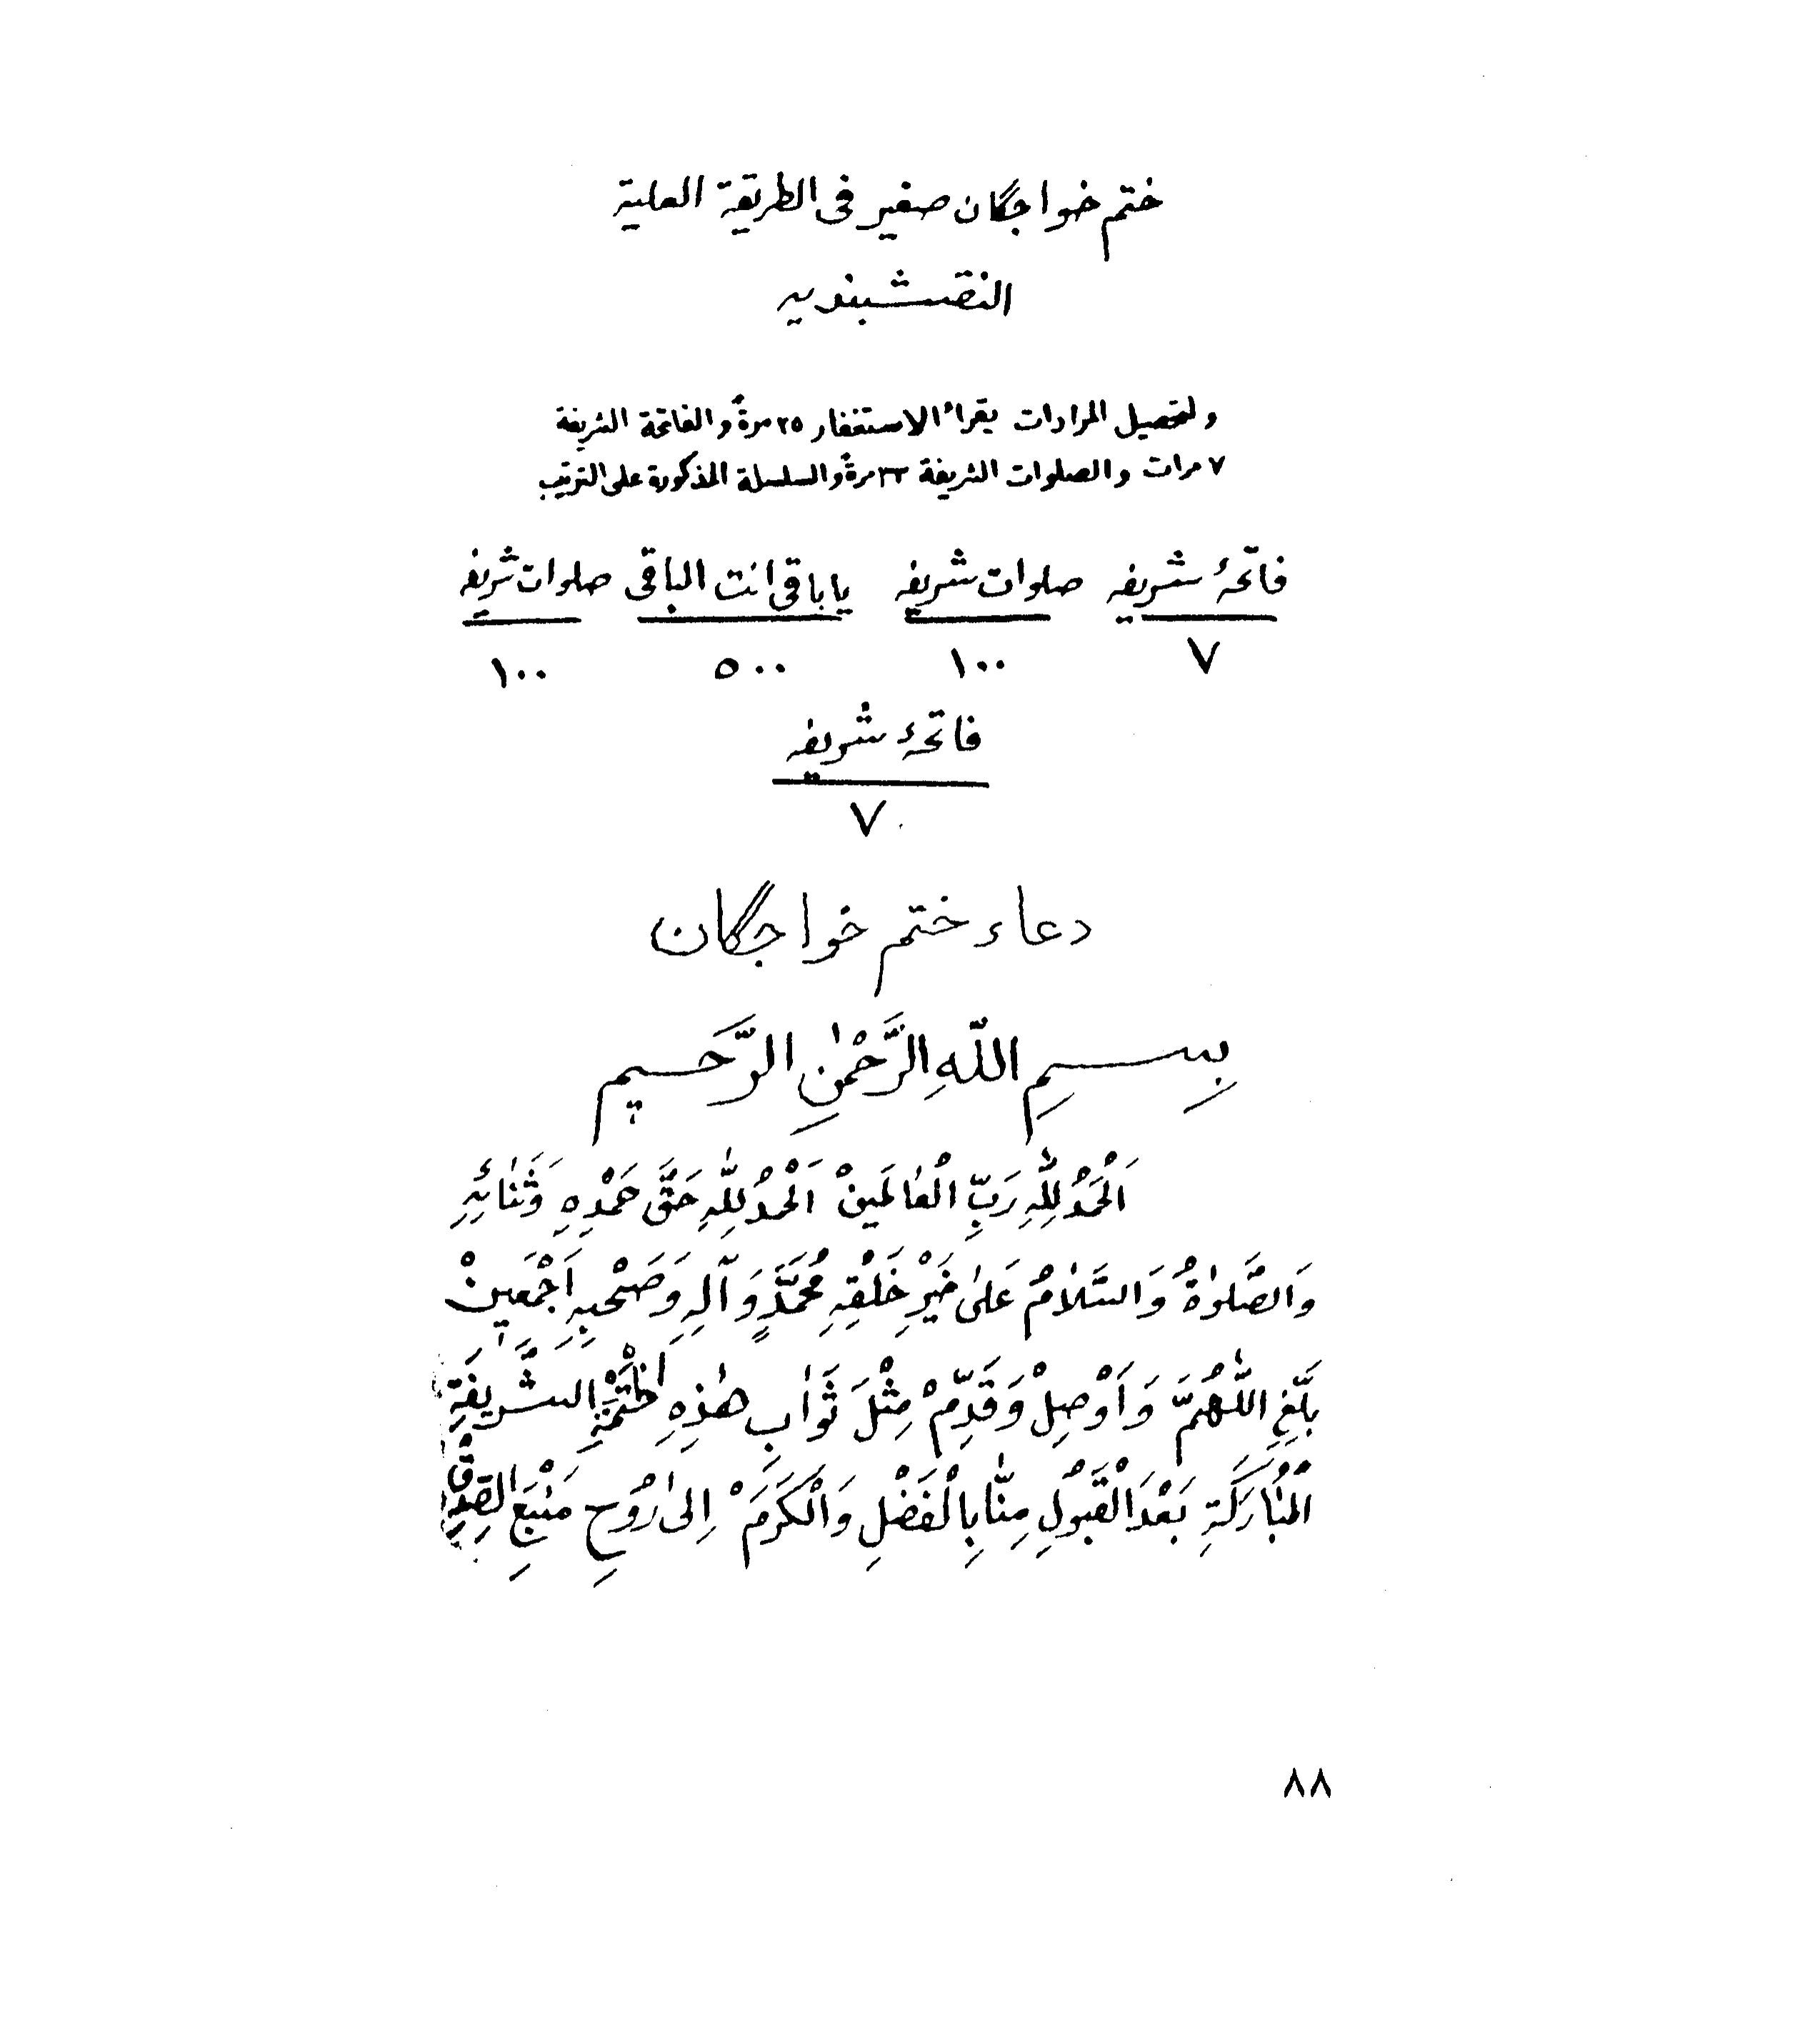 ختم خواجگان صغير فى الطريقة العلية
النقشبنديه
ولتحصيل المرادات يقراء الاستغفار ٢٥ مرةً والفاتحة الشريفة
٧ مرات والصلوات الشريفة ٣٣ مرةً والسلسلة المذكورة على الترتيب
فاتحهٔ شريفه صلوات شريفه ياباقى انت الباقى صلوات شريفه
٧ ١٠٠ ٥٠٠ ١٠٠
فاتحهٔ شريفه
٧
دعاء ختم خواجگان
بِسْمِ اللّٰهِ الرَّحْمٰنِ الرَّحيم
اَلْحَمْدُ لِلّٰهِ رَبِّ الْعٰالَمينْ اَلْحَمْدُ لِلّٰهِ حَقَّ حَمْدِهِ وَثَنٰائِهِ
وَالصَّلوٰةُ وَالسَّلٰامُ عَلىٰ خَيْرِ خَلْقِهِ مُحَمَّدٍ وَآلِهِ وَصَحْبِهِ اَجْمَعينْ
بَلِّغِ اللّٰهُمَّ وَاَوْصِلْ وَقَدِّمْ مِثْلَ ثَوٰابِ هٰذِهِ الْخَتْمَةِ الشَّريفَةِ
الْمُبٰارَكَةِ بَعْدَ الْقَبُولِ مِنّٰا بِالْفَضْلِ وَالْكَرَمْ اِلىٰ رُوحِ مَنْبَعِ الصِّدْقِ
٨٨